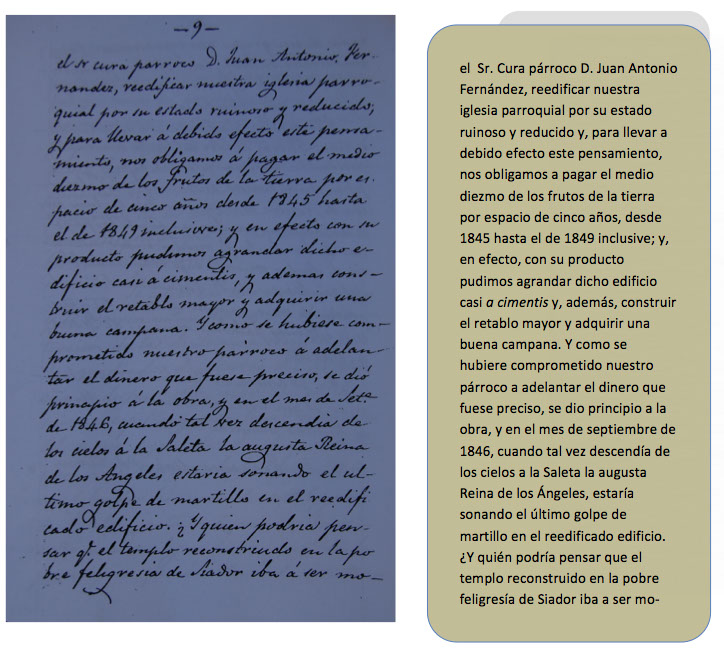 — 9 —
el sr cura párroco D. Juan Antonio, Fer-
nandez, reedificar nuestra iglesia parro-
quial por su estado ruinoso y reducido;
y para llevar á debido efecto este pensa-
miento, nos obligamos á pagar el medio
diezmo de los frutos de la tierra por es-
pacio de cinco años desde 1845 hasta
el de 1849 inclusive; y en efecto con su
producto pudimos agrandar dicho e-
dificio casi á cimentis, y ademas cons-
truir el retablo mayor y adquirir una
buena campana. Y como se hubiese com-
prometido nuestro párroco á adelan-
tar el dinero que fuese preciso, se dió
principio á la obra, y en el mes de Setᵉ
de 1846, cuando tal vez descendia de
los cielos á la Saleta la augusta Reina
de los Angeles estaria sonando el ul-
timo golpe de martillo en el reedifi
cado edificio. ¿Y quien podria pen-
sar q.ᵉ el templo reconstruido en la po
bre feligresia de Siador iba á ser mo-
el Sr. Cura párroco D. Juan Antonio
Fernández, reedificar nuestra
iglesia parroquial por su estado
ruinoso y reducido y, para llevar a
debido efecto este pensamiento,
nos obligamos a pagar el medio
diezmo de los frutos de la tierra
por espacio de cinco años, desde
1845 hasta el de 1849 inclusive; y,
en efecto, con su producto
pudimos agrandar dicho edificio
casi a cimentis y, además, construir
el retablo mayor y adquirir una
buena campana. Y como se
hubiere comprometido nuestro
párroco a adelantar el dinero que
fuese preciso, se dio principio a la
obra, y en el mes de septiembre de
1846, cuando tal vez descendía de
los cielos a la Saleta la augusta
Reina de los Ángeles, estaría
sonando el último golpe de
martillo en el reedificado edificio.
¿Y quién podría pensar que el
templo reconstruido en la pobre
feligresía de Siador iba a ser mo-